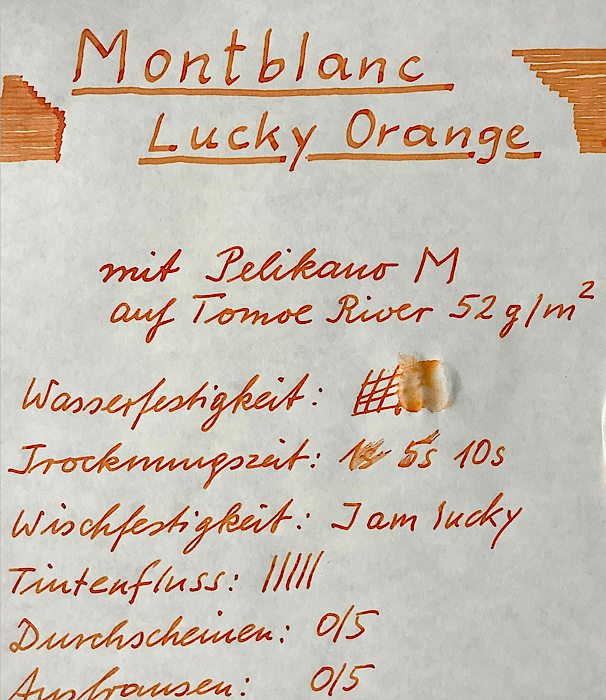 Montblanc
Lucky Orange
mit Pelikano M
auf Tomoe River 52 g/m²
Wasserfestigkeit:
Trocknungszeit: 1s 5s 10s
Wischfestigkeit: I am lucky
Tintenfluss: |||||
Durchscheinen: 0/5
Ausfransen: 0/5